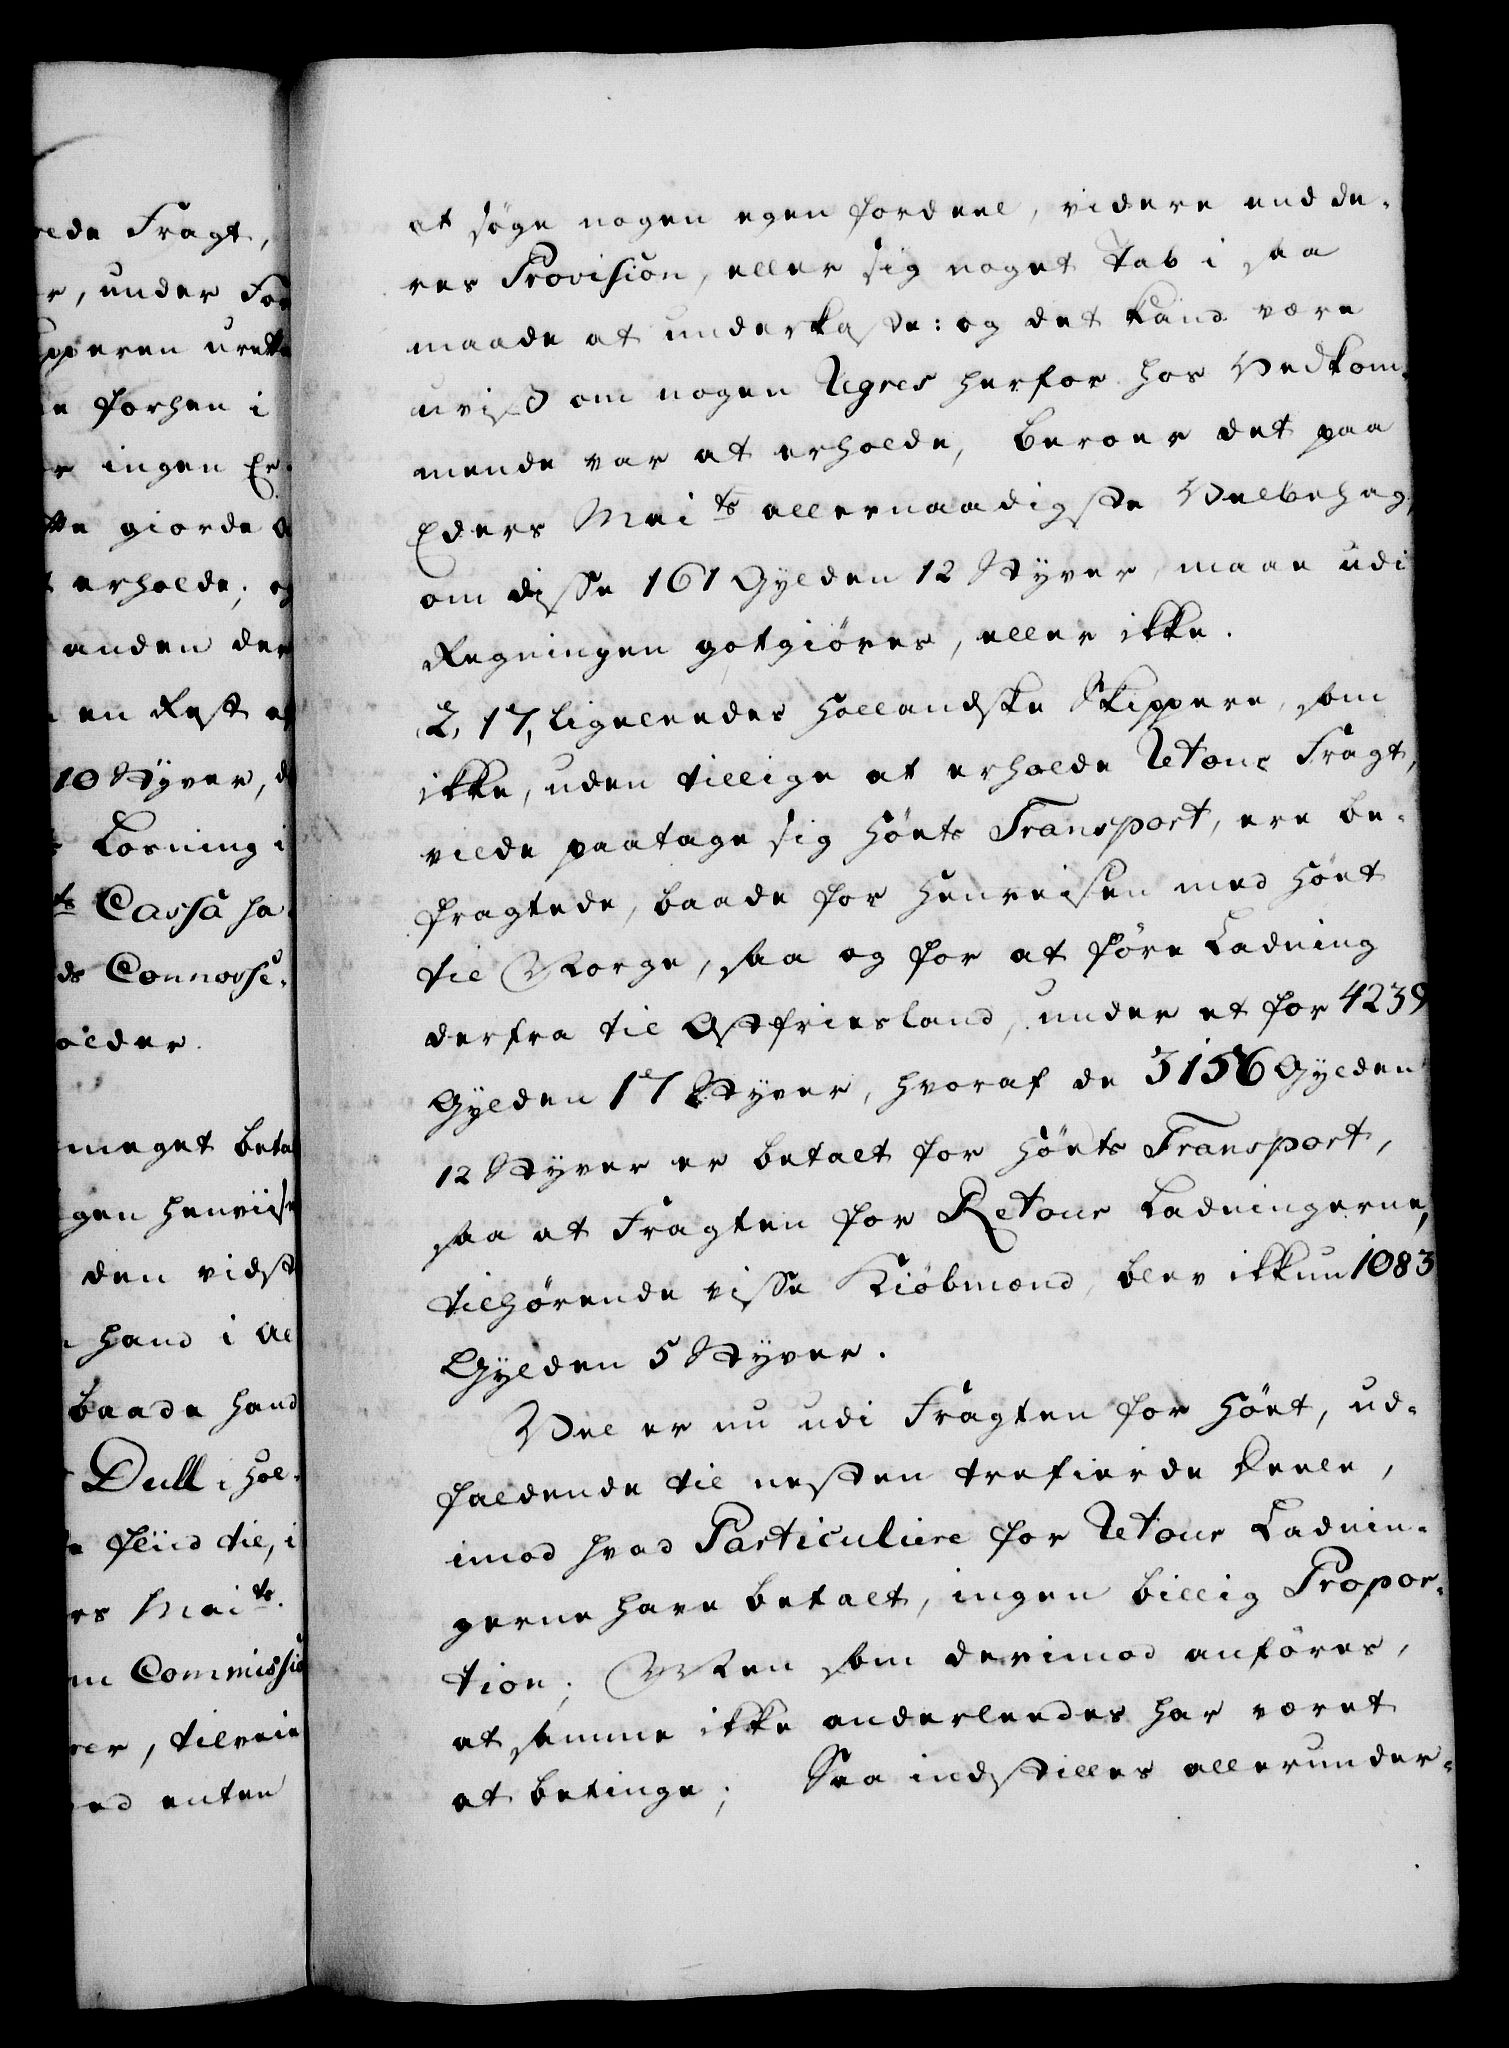 elde Fragt,
r, under For
pperen urette
e forhen i
r ingen Er-
tte giorde
t erholde; og
anden der
en Rest af
10 Styver, d
Losning i
ts Cassa ha
ds Connosse-
older.
meget beta
gen henviise
den vidst
hand i Al
baade hand
Dull i Hol-
fliid til, i
rs Maits.
m Commissio
er, tilveie
ed enten
at søge nogen egen fordeel, videre end de-
res Provision, eller sig noget Tab i saa
maade at underkaste: og det kand være
uvist om nogen Regres herfor hos Vedkom-
mende var at erholde, beroer det paa
Eders Maits allernaadigste Velbehag,
om disse 161 Gylden 12 Styver, maae udi
Regningen gotgiøres, eller ikke.
2, 17, ligeleedes Hollandske Skippere, som
ikke, uden tillige at erholde Retour Fragt,
vilde paatage sig Høets Transport, ere be-
fragtede, baade for Henreisen med Høet
til Norge, saa og for at føre Ladning
derfra til Ostfriesland, under et for 4239
Gylden 17 Styver, hvoraf de 3156 Gylden
12 Styver er betalt for Høets Transport,
saa at Fragten for Retour Ladningerne,
tilhørende visse Kiøbmænd, blev ikkun 1083
Gylden 5 Styver.
Vel er nu udi Fragten for Høet, ud-
faldende til nesten trefierde Deele,
imod hvad Particuliere for Retour Ladnin-
gerne have betalt, ingen billig Propor-
tion; Men som derimod anføres,
at samme ikke anderleedes har været
at betinge; Saa indstilles allerunder-